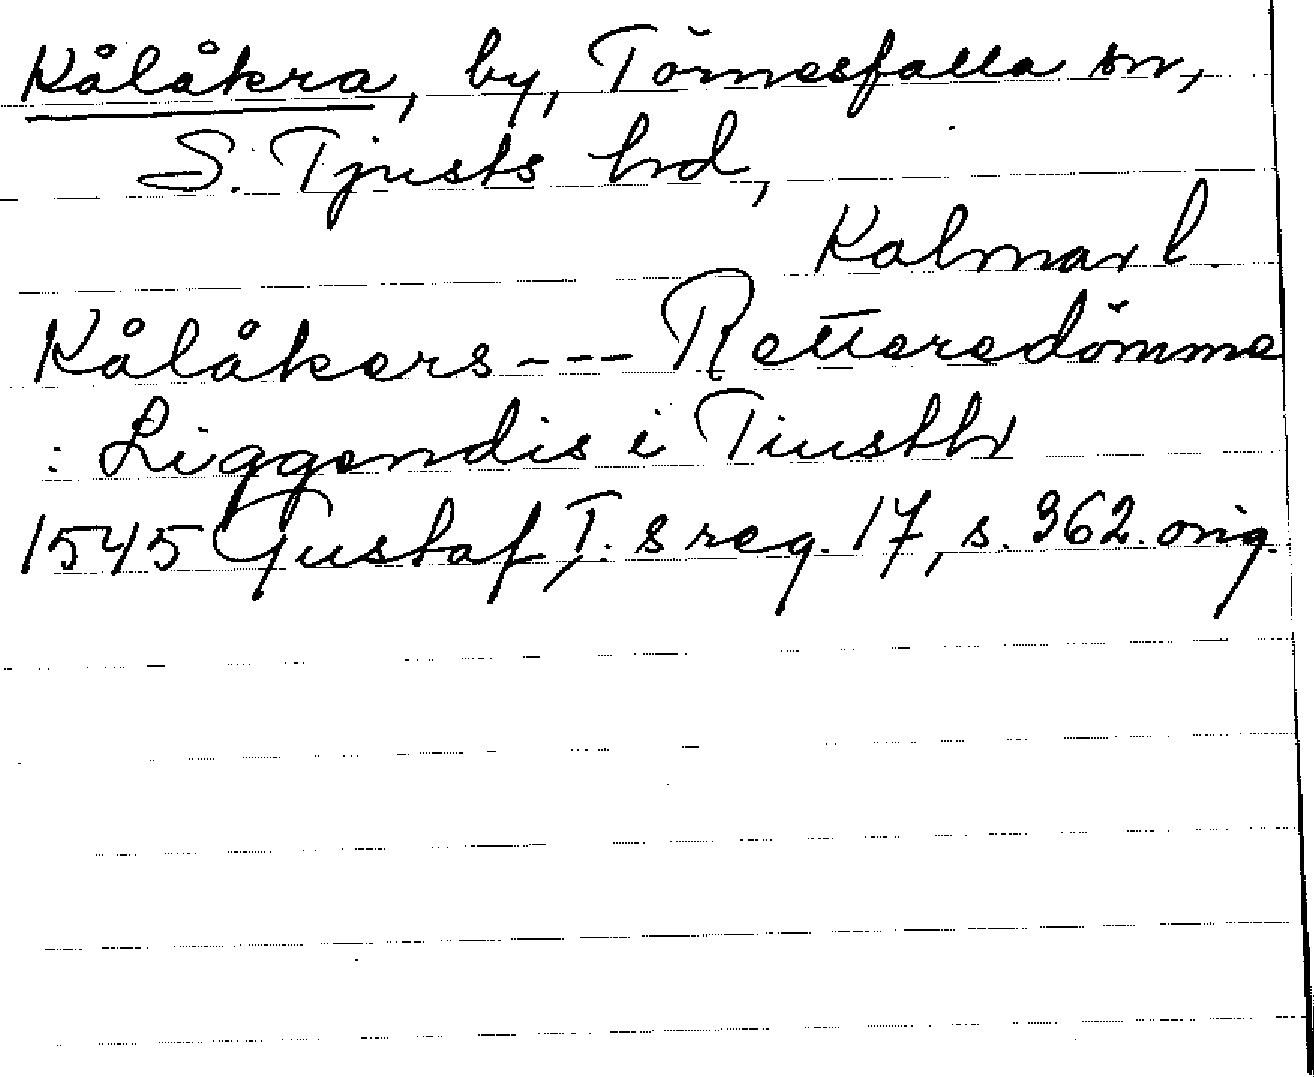 Kålåkra, by, Törnesfalla sn,
S. Tjusts hd,
Kalmar l.
Kålåkers --- Retteredömme
: Liggendis i Tiustth
1545 Gustaf I:s reg. 17, s. 362. orig.